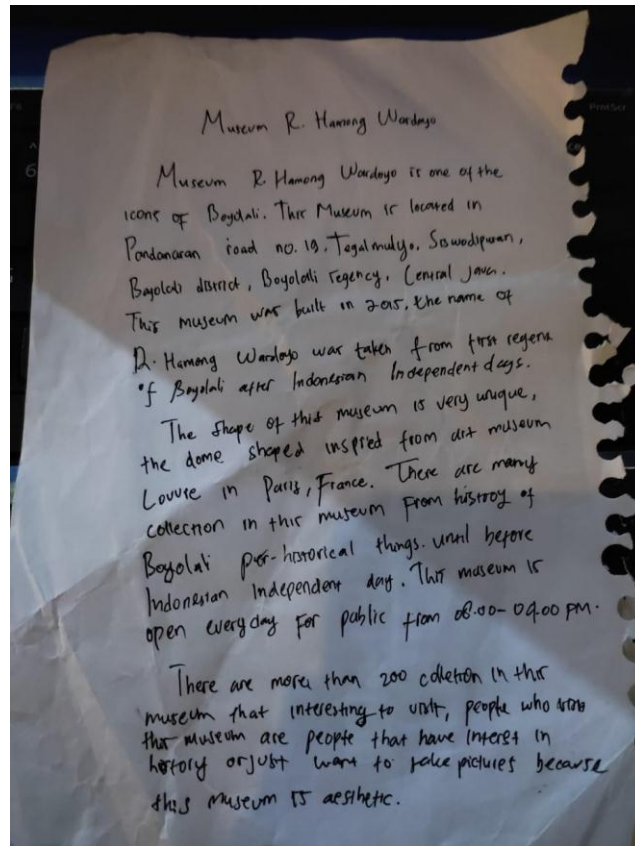 Museum R. Hamong Wardoyo
Museum R. Hamong Wardoyo is one of the
icons of Boyolali. This Museum is located in
Pandanaran road no. 19. Tegalmulyo, Siswodipuran,
Boyolali district, Boyolali regency, Central Java.
This museum was built in 2015, the name of
R. Hamong Wardoyo was taken from first regent
of Boyolali after Indonesian Independent days.
The shape of this museum is very unique,
the dome shaped inspried from art museum
Louvre in Paris, France. There are many
collection in this museum from histroy of
Boyolali per-historical things. until before
Indonesian Independent day. This museum is
open everyday for public from 08.00-04.00 PM.
There are more than 200 colletion in this
museum that interesting to visit, people who
this museum are people that have interst in
history or just want to take pictures because
this museum is aesthetic.